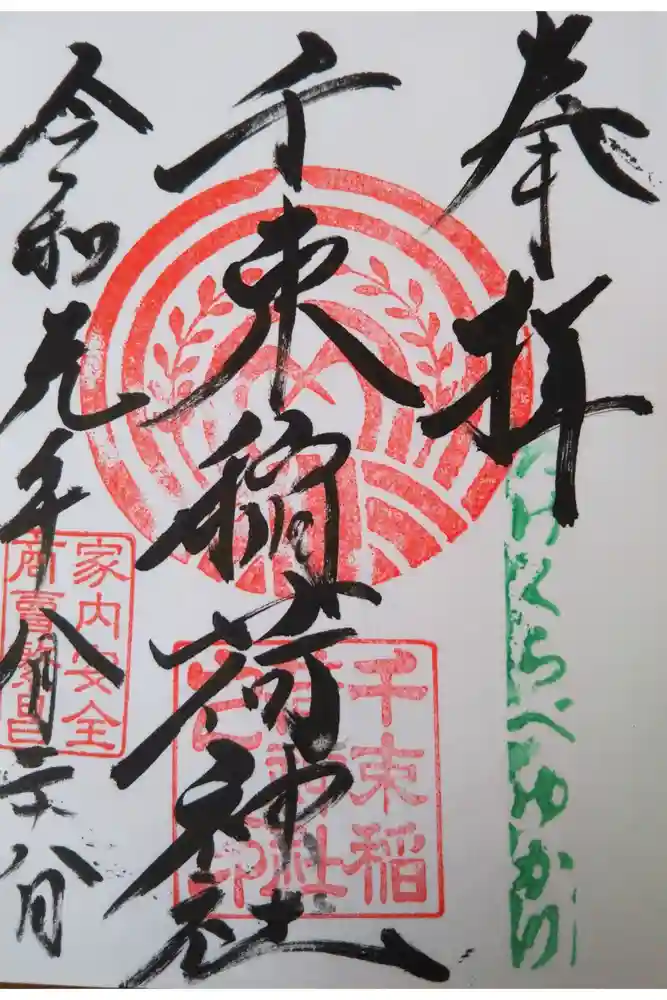 奉拝
たけくらべゆかりの
千束稲荷神社
千束稲
荷神社
令和元年八月二十八日
家内安全
商賣繁昌